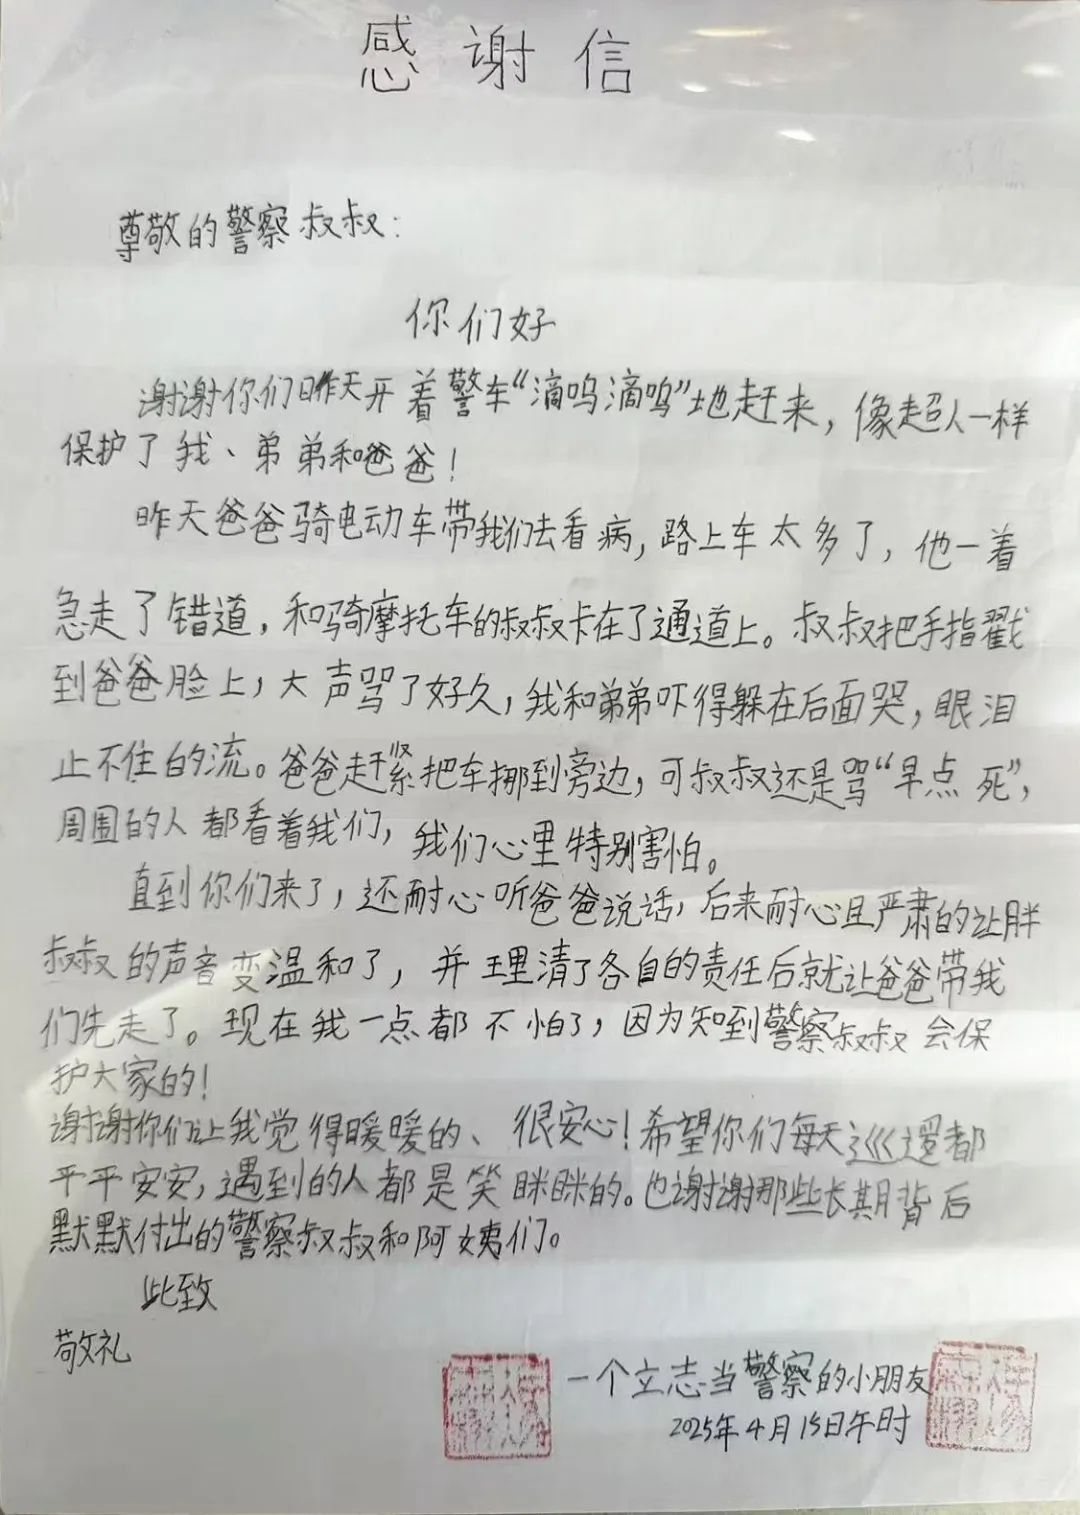 感谢信
尊敬的警察叔叔：
你们好
谢谢你们昨天开着警车“滴呜滴呜”地赶来，像超人一样
保护了我、弟弟和爸爸！
昨天爸爸骑电动车带我们去看病，路上车太多了，他一着
急走了错道，和骑摩托车的叔叔卡在了通道上。叔叔把手指戳
到爸爸脸上，大声骂了好久，我和弟弟吓得躲在后面哭，眼泪
止不住的流。爸爸赶紧把车挪到旁边，可叔叔还是骂“早点死”，
周围的人都看着我们，我们心里特别害怕。
直到你们来了，还耐心听爸爸说话，后来耐心且严肃的让胖
叔叔的声音变温和了，并理清了各自的责任后就让爸爸带我
们先走了。现在我一点都不怕了，因为知到警察叔叔会保
护大家的！
谢谢你们让我觉得暖暖的、很安心！希望你们每天巡逻都
平平安安，遇到的人都是笑眯眯的。也谢谢那些长期背后
默默付出的警察叔叔和阿姨们。
此致
敬礼
一个立志当警察的小朋友
2025年4月15日午时